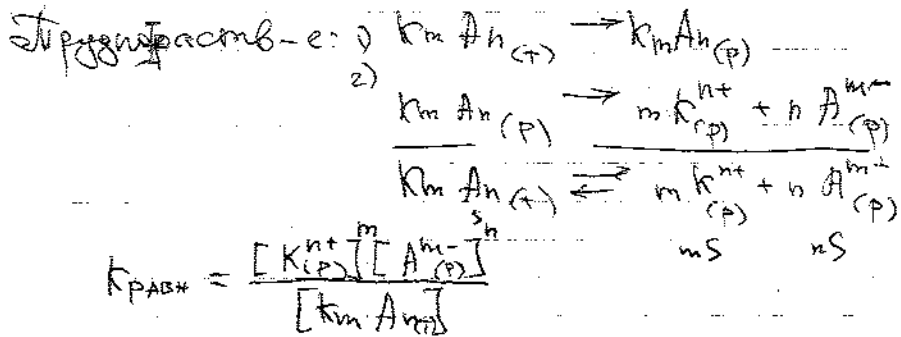 Труднораств-е: 1) KmAn(т) → KmAn(р)
2) KmAn(р) → mKⁿ⁺(р) + nAᵐ⁻(р)
KmAn(т) ⇄ mKⁿ⁺(р) + nAᵐ⁻(р)
S mS nS
Kравн = [Kⁿ⁺(р)]ᵐ[Aᵐ⁻(р)]ⁿ
[KmAn(т)]